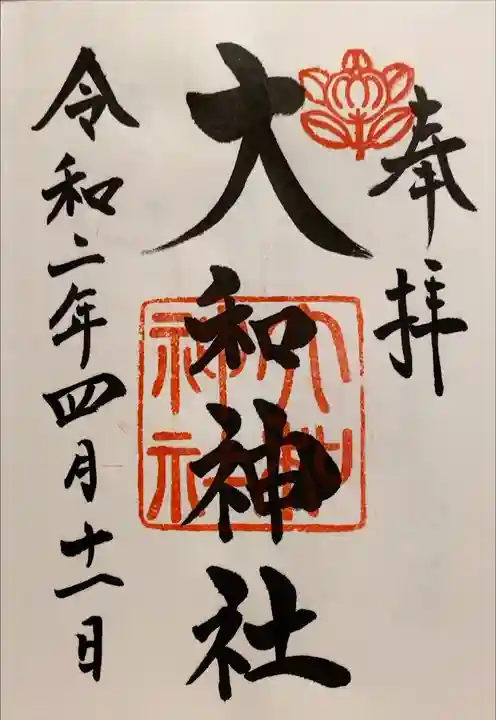 奉拝
大和神社
大和神社
令和二年四月十一日